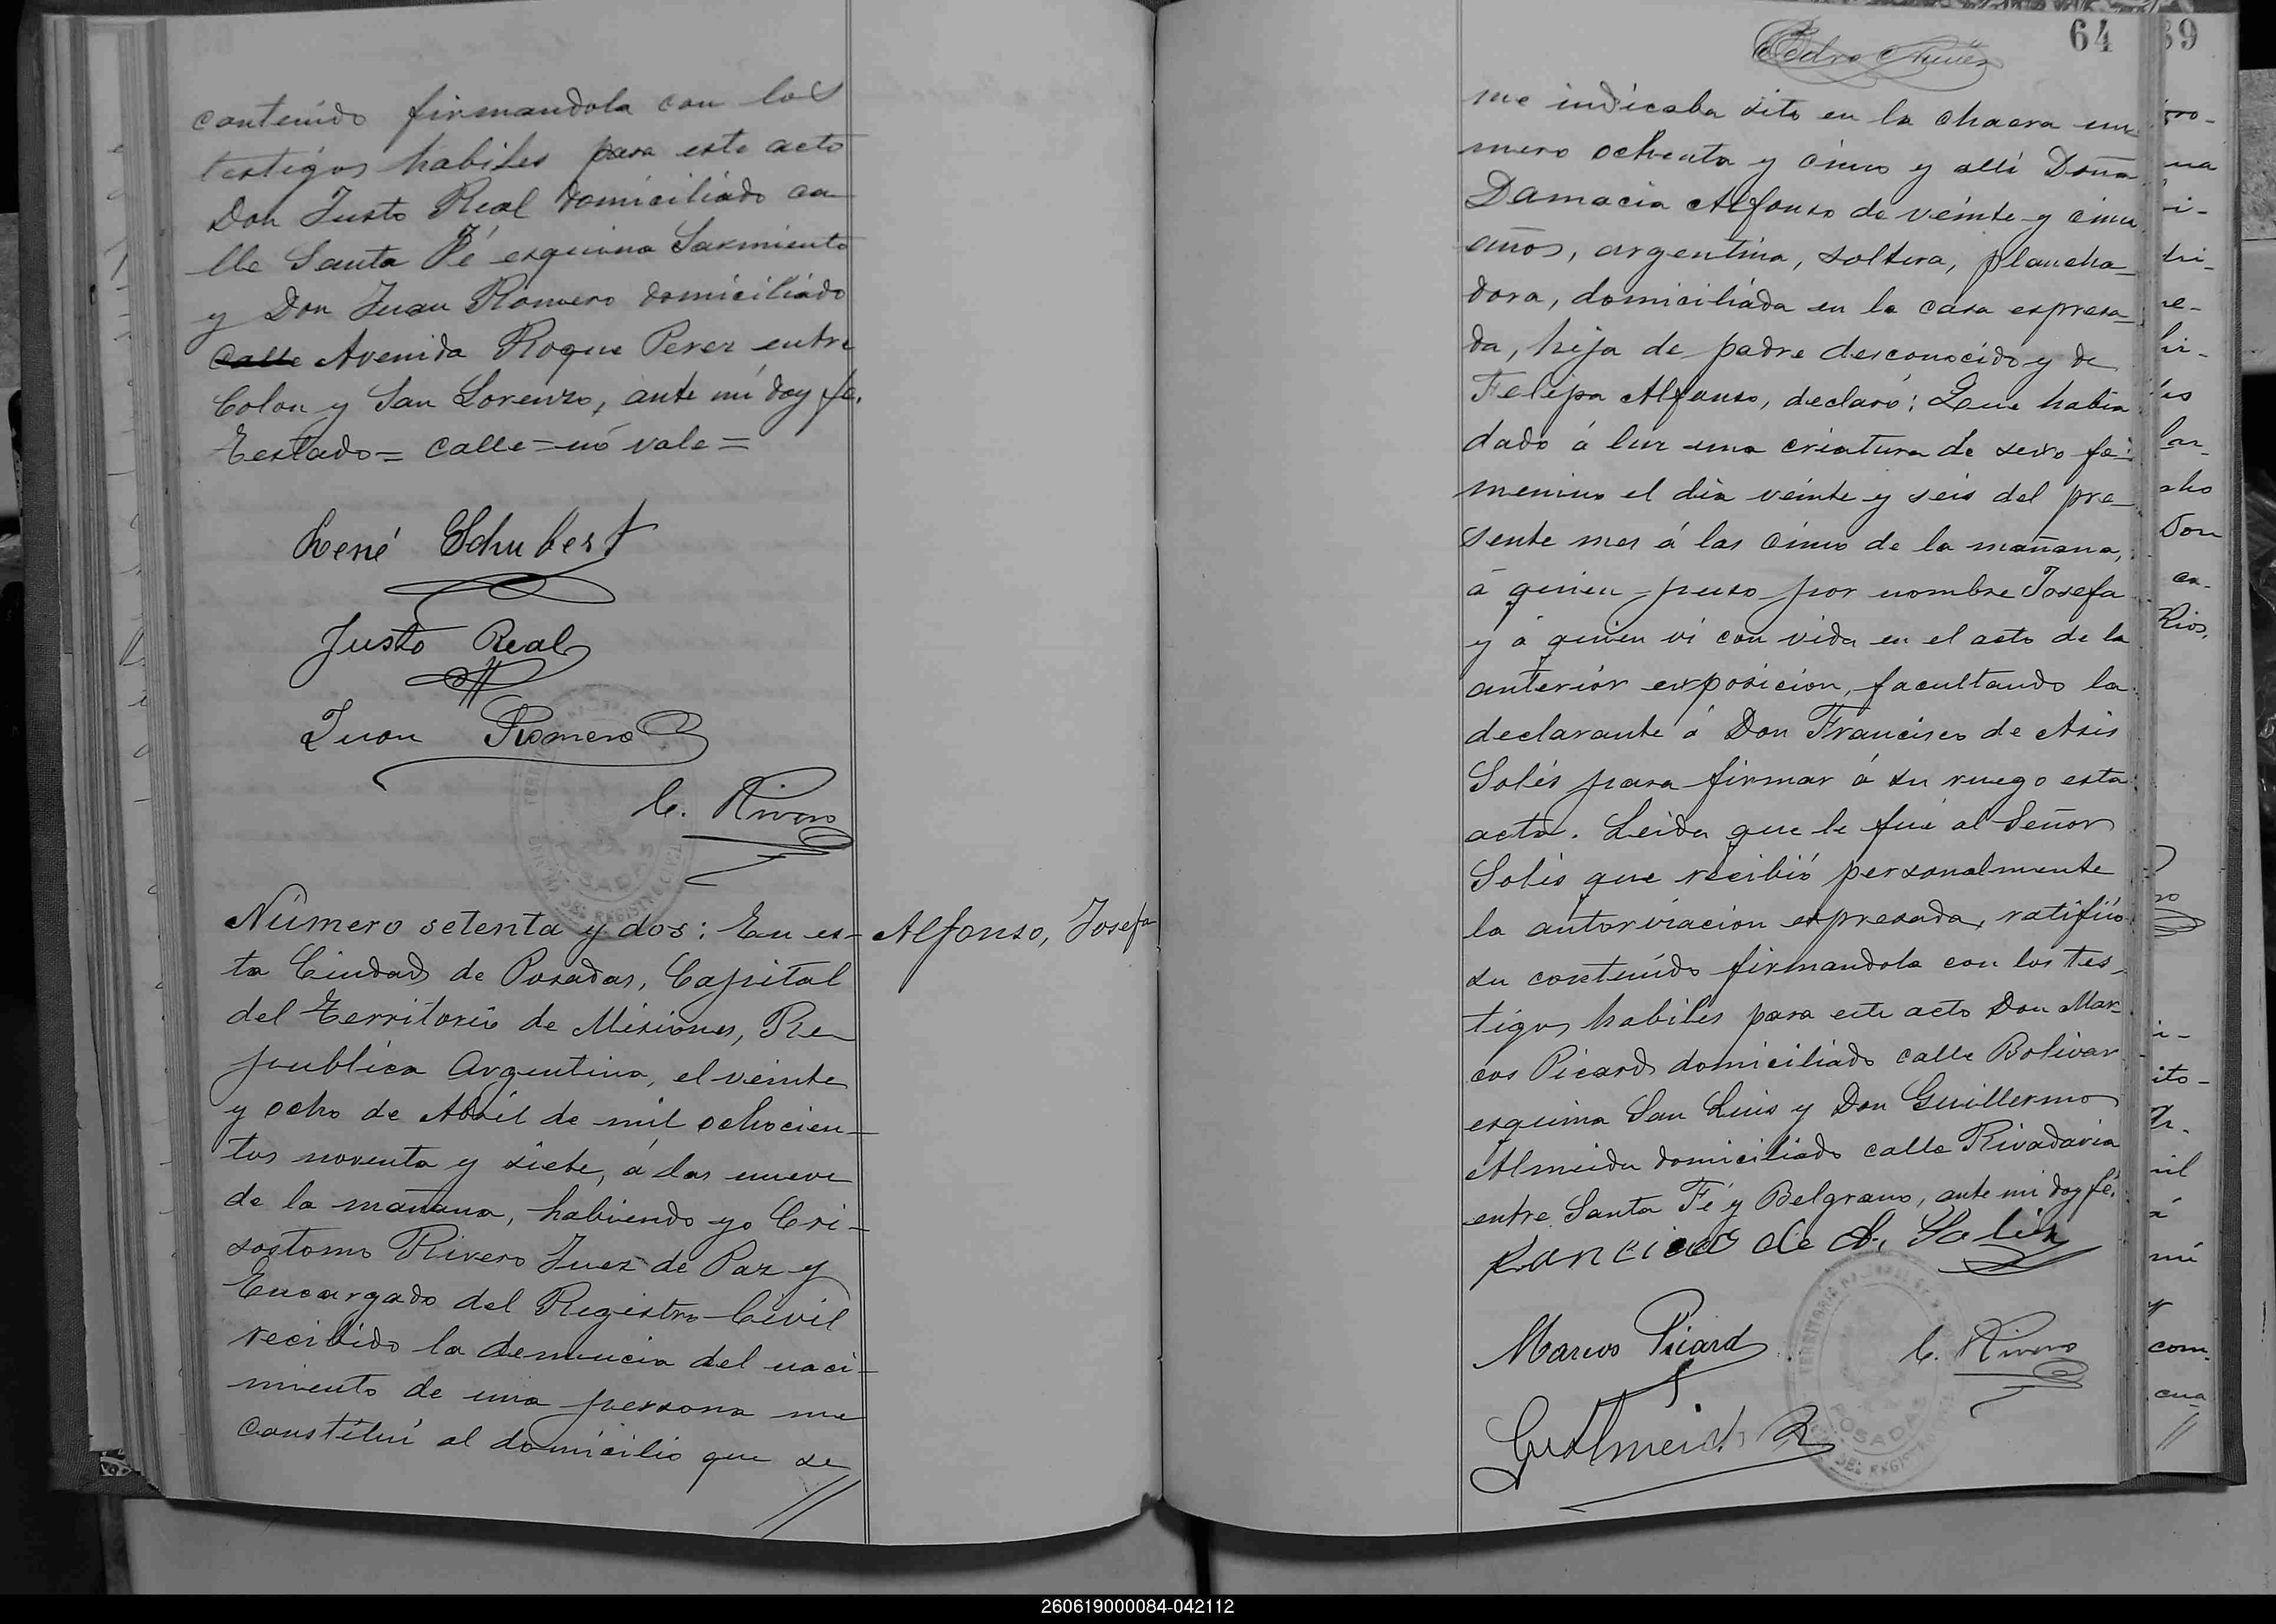 contenido firmandola con los
testigos habiles para este acto
Don Justo Real domiciliado ca
lle Santa Fé esquina Sarmiento
y Don Juan Romero domiciliado
calle Avenida Roque Perez entre
Colon y San Lorenzo, ante mi doy fé.
Testado = calle = nó vale =
René Schubert
Justo Real
Juan Romero
C. Rivero
Número setenta y dos: En es-
Alfonso, Josefa
ta Ciudad de Posadas, Capital
del Territorio de Misiones, Re
publica Argentina, el veinte
y ocho de Abril de mil ochocien-
tos noventa y siete, á las nueve
de la mañana, habiendo yo Cri-
sostomo Rivero Juez de Paz y
Encargado del Registro Civil
recibido la denuncia del naci-
miento de una persona me
constituí al domicilio que se
64
Pedro Nuñez
me indicaba sito en la chacra nu-
mero ochenta y cinco y alli Doña
Damacia Alfonso de veinte y cinco
años, argentina, soltera, plancha-
dora, domiciliada en la casa espresa-
da, hija de padre desconocido y de
Felipa Alfonso, declaró: Que habia
dado á luz una criatura de sexo fe-
menino el dia veinte y seis del pre-
sente mes á las cinco de la mañana,
á quien puso por nombre Josefa
y á quien vi con vida en el acto de la
anterior exposicion, facultando la
declarante á Don Francisco de Asis
Solis para firmar á su ruego esta
acta. Leida que le fué al Señor
Solis que recibió personalmente
la autorizacion espresada, ratificó
su contenido firmandola con los tes-
tigos habiles para este acto Don Mar-
cos Picard domiciliado calle Bolivar
esquina San Luis y Don Guillermo
Almeida domiciliado calle Rivadavia
entre Santa Fé y Belgrano, ante mi doy fé.
Francisco de A. Solis
Marcos Picard
C. Rivero
G. Almeida
POSADAS
260619000084-042112